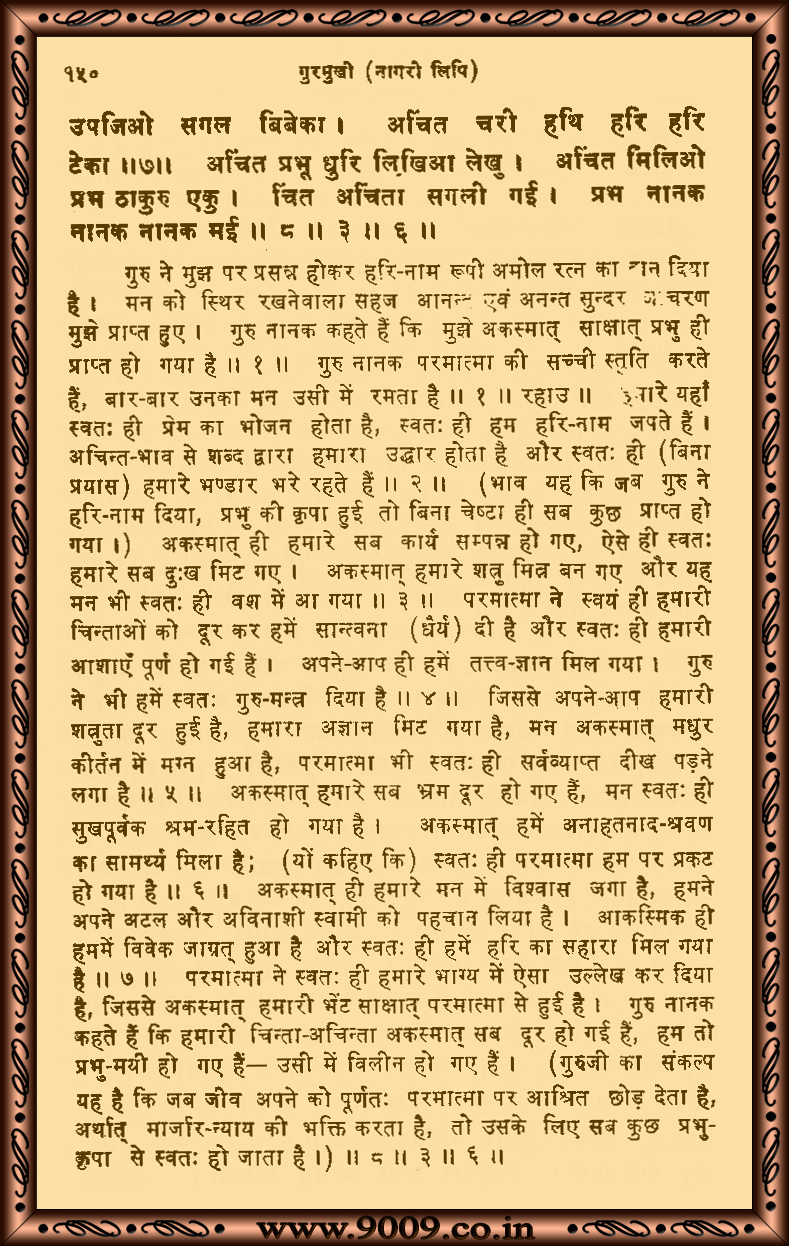 १५० गुरमुखी (नागरी लिपि)
उपजिओ सगल बिबेका । अचिंत चरी हथि हरि हरि
टेका ॥७॥ अचिंत प्रभू धुरि लिखिआ लेखु । अचिंत मिलिओ
प्रभ ठाकुरु एकु । चिंत अचिंता सगली गई । प्रभ नानक
नानक नानक मई ॥ ८ ॥ ३ ॥ ६ ॥
गुरु ने मुझ पर प्रसन्न होकर हरि-नाम रूपी अमोल रत्न का दान दिया
है । मन को स्थिर रखनेवाला सहज आनन्द एवं अनन्त सुन्दर आचरण
मुझे प्राप्त हुए । गुरु नानक कहते हैं कि मुझे अकस्मात् साक्षात् प्रभु ही
प्राप्त हो गया है ॥ १ ॥ गुरु नानक परमात्मा की सच्ची स्तुति करते
हैं, बार-बार उनका मन उसी में रमता है ॥ १ ॥ रहाउ ॥ हमारे यहाँ
स्वतः ही प्रेम का भोजन होता है, स्वतः ही हम हरि-नाम जपते हैं ।
अचिन्त-भाव से शब्द द्वारा हमारा उद्धार होता है और स्वतः ही (बिना
प्रयास) हमारे भण्डार भरे रहते हैं ॥ २ ॥ (भाव यह कि जब गुरु ने
हरि-नाम दिया, प्रभु की कृपा हुई तो बिना चेष्टा ही सब कुछ प्राप्त हो
गया ।) अकस्मात् ही हमारे सब कार्य सम्पन्न हो गए, ऐसे ही स्वतः
हमारे सब दुःख मिट गए । अकस्मात् हमारे शत्रु मित्र बन गए और यह
मन भी स्वतः ही वश में आ गया ॥ ३ ॥ परमात्मा ने स्वयं ही हमारी
चिन्ताओं को दूर कर हमें सान्त्वना (धैर्य) दी है और स्वतः ही हमारी
आशाएँ पूर्ण हो गई हैं । अपने-आप ही हमें तत्त्व-ज्ञान मिल गया । गुरु
ने भी हमें स्वतः गुरु-मन्त्र दिया है ॥ ४ ॥ जिससे अपने-आप हमारी
शत्रुता दूर हुई है, हमारा अज्ञान मिट गया है, मन अकस्मात् मधुर
कीर्तन में मग्न हुआ है, परमात्मा भी स्वतः ही सर्वव्याप्त दीख पड़ने
लगा है ॥ ५ ॥ अकस्मात् हमारे सब भ्रम दूर हो गए हैं, मन स्वतः ही
सुखपूर्वक श्रम-रहित हो गया है । अकस्मात् हमें अनाहतनाद-श्रवण
का सामर्थ्य मिला है; (यों कहिए कि) स्वतः ही परमात्मा हम पर प्रकट
हो गया है ॥ ६ ॥ अकस्मात् ही हमारे मन में विश्वास जगा है, हमने
अपने अटल और अविनाशी स्वामी को पहचान लिया है । आकस्मिक ही
हममें विवेक जाग्रत् हुआ है और स्वतः ही हमें हरि का सहारा मिल गया
है ॥ ७ ॥ परमात्मा ने स्वतः ही हमारे भाग्य में ऐसा उल्लेख कर दिया
है, जिससे अकस्मात् हमारी भेंट साक्षात् परमात्मा से हुई है । गुरु नानक
कहते हैं कि हमारी चिन्ता-अचिन्ता अकस्मात् सब दूर हो गई हैं, हम तो
प्रभु-मयी हो गए हैं— उसी में विलीन हो गए हैं । (गुरुजी का संकल्प
यह है कि जब जीव अपने को पूर्णतः परमात्मा पर आश्रित छोड़ देता है,
अर्थात् मार्जार-न्याय की भक्ति करता है, तो उसके लिए सब कुछ प्रभु-
कृपा से स्वतः हो जाता है ।) ॥ ८ ॥ ३ ॥ ६ ॥
www.9009.co.in